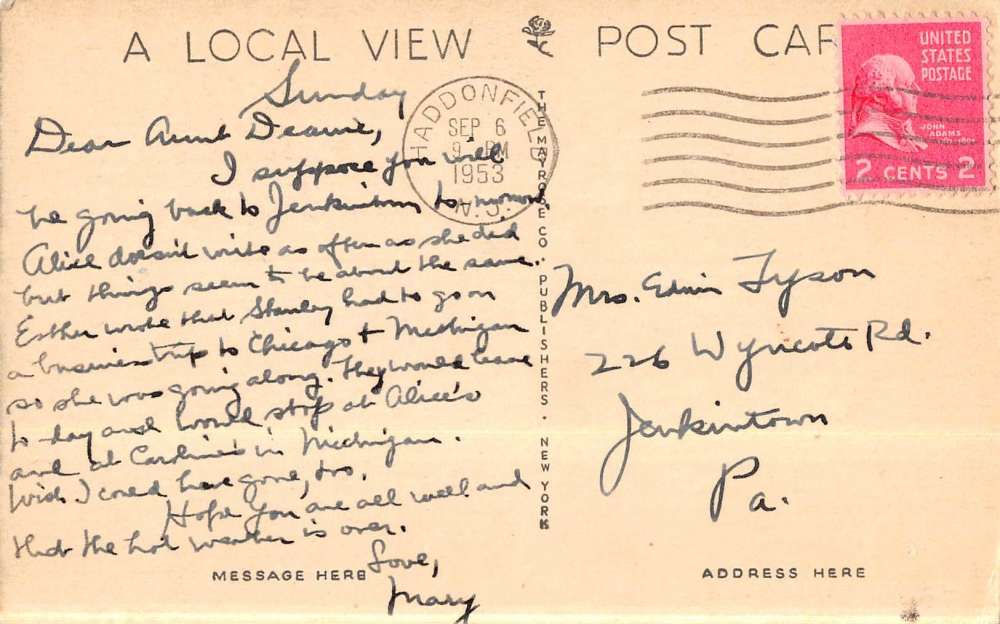 A LOCAL VIEW
POST CAR
UNITED
STATES
POSTAGE
JOHN
ADAMS
2 CENTS 2
HADDONFIELD
SEP 6
9 PM
1953
N.J.
Sunday
Dear Aunt Deanie,
I suppose you will
be going back to Jenkintown to-morrow.
Alice doesn't write as often as she did
but things seem to be about the same.
Esther wrote that Stanley had to go on
a business trip to Chicago + Michigan
so she was going along. They would leave
to-day and would stop at Alice's
and at Caroline's in Michigan.
Wish I could have gone, too.
Hope you are all well and
that the hot weather is over.
Love,
Mary
MESSAGE HERE
THE MAYROSE CO. PUBLISHERS. NEW YORK
Mrs. Edwin Tyson
226 Wyncote Rd.
Jenkintown
Pa.
ADDRESS HERE